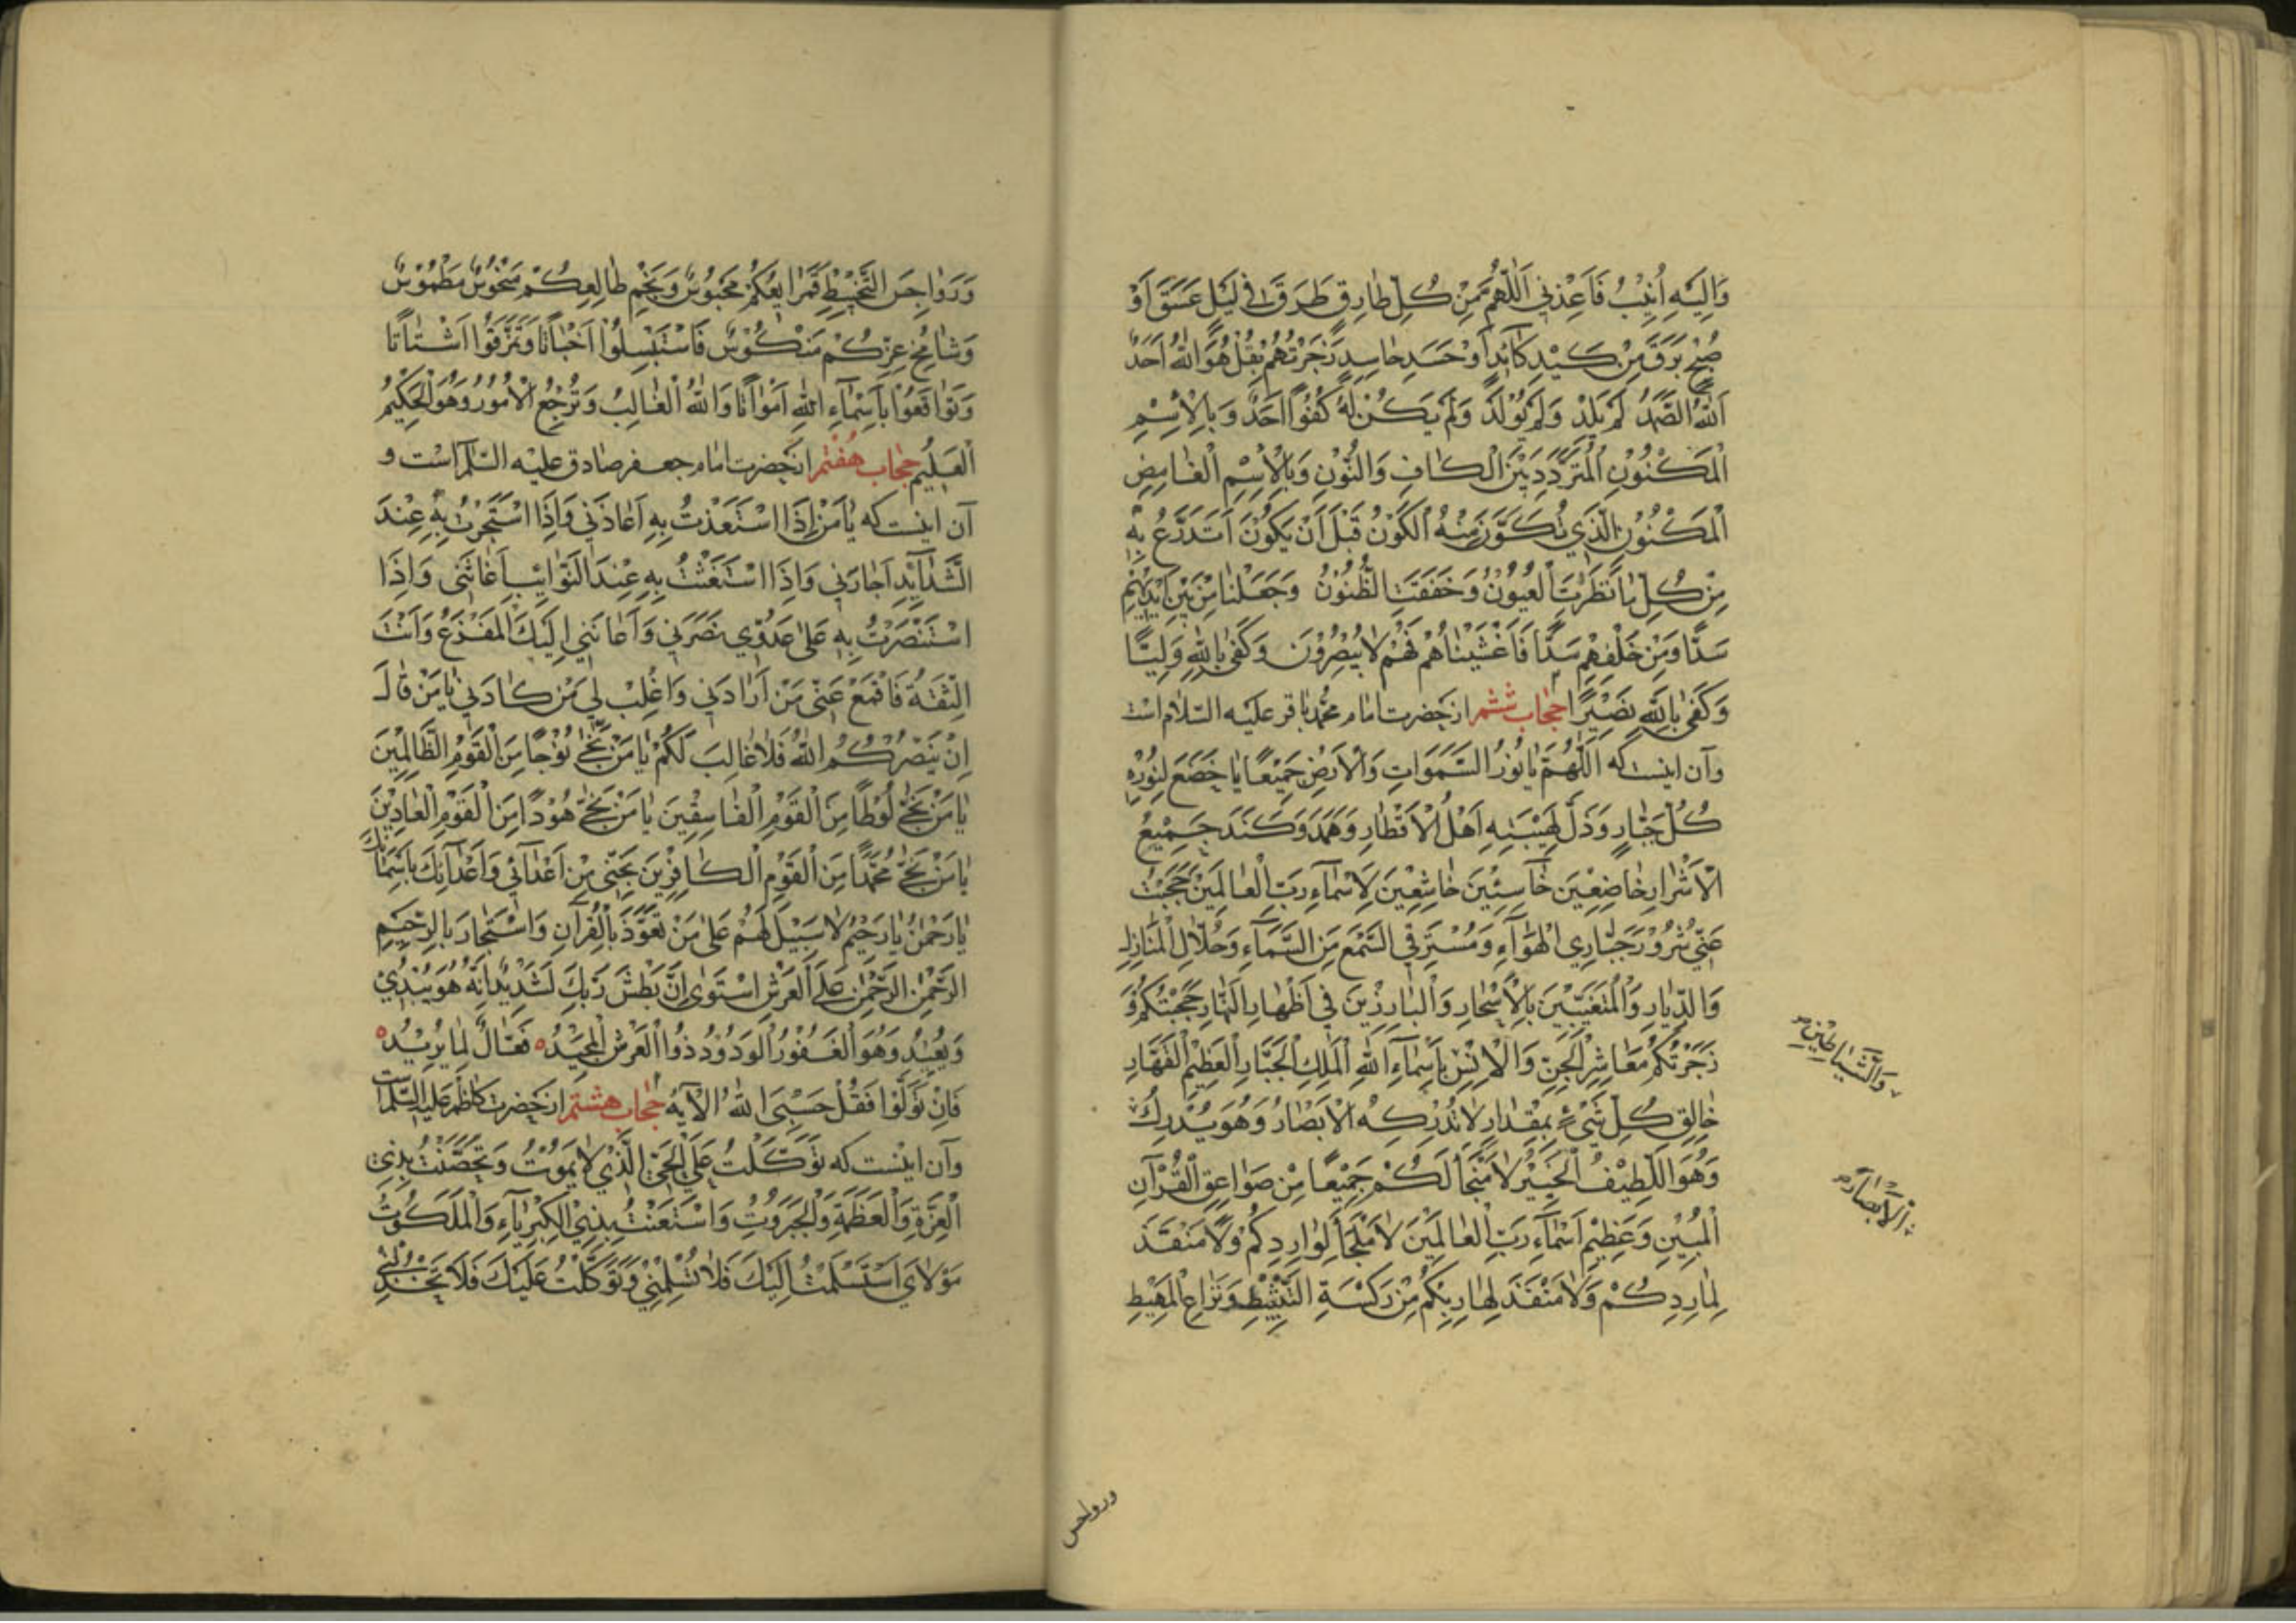 وَاِلَيْهِ اُنِيْبُ فَاَعِذْنِي اَللّٰهُمَّ مِنْ كُلِّ طَارِقٍ طَرَقَ فِي لَيْلٍ غَسَقَ اَوْ
صُبْحٍ بَرَقَ مِنْ كَيْدِ كَآئِدٍ اَوْ حَسَدِ حَاسِدٍ زَجَرْتُهُمْ بِقُلْ هُوَ اللّٰهُ اَحَدٌ
اَللّٰهُ الصَّمَدُ لَمْ يَلِدْ وَلَمْ يُوْلَدْ وَلَمْ يَكُنْ لَهُ كُفُوًا اَحَدٌ وَبِالْاِسْمِ
الْمَكْنُوْنِ الْمُتَرَدِّدِ بَيْنَ الْكَافِ وَالنُّوْنِ وَبِالْاِسْمِ الْغَامِضِ
الْمَكْنُوْنِ الَّذِي تَكَوَّنَ مِنْهُ الْكَوْنُ قَبْلَ اَنْ يَكُوْنَ اَتَدَرَّعُ بِهِ
مِنْ كُلِّ مَا نَظَرَتِ الْعُيُوْنُ وَخَفَقَتِ الظُّنُوْنُ وَجَعَلْنَا مِنْ بَيْنِ اَيْدِيْهِمْ
سَدًّا وَمِنْ خَلْفِهِمْ سَدًّا فَاَغْشَيْنَاهُمْ فَهُمْ لَا يُبْصِرُوْنَ وَكَفَى بِاللّٰهِ وَلِيًّا
وَكَفَى بِاللّٰهِ نَصِيْرًا حجاب ششم از حضرت امام محمد باقر عليه السلام است
وآن اينست كه اَللّٰهُمَّ يَا نُوْرَ السَّمٰوَاتِ وَالْاَرْضِ جَمِيْعًا يَا خَضَعَ لِنُوْرِهِ
كُلُّ جَبَّارٍ وَذَلَّ لِهَيْبَتِهِ اَهْلُ الْاَقْطَارِ وَهَمَدَ وَكَنَدَ جَمِيْعُ
الْاَشْرَارِ خَاضِعِيْنَ خَاسِئِيْنَ خَاشِعِيْنَ لِاَسْمَآءِ رَبِّ الْعَالَمِيْنَ حَجَبْتُ
عَنِّي شُرُوْرَ جَبَّارِي الْهَوَآءِ وَمُسْتَرِقِي السَّمْعِ مِنَ السَّمَآءِ وَحُلَّالِ الْمَنَازِلِ
وَالدِّيَارِ وَالْمُتَغَيِّبِيْنَ بِالْاَسْحَارِ وَالْبَارِزِيْنَ فِي اَظْهَارِ النَّهَارِ حَجَبْتُكُمْ وَ
زَجَرْتُكُمْ مَعَاشِرَ الْجِنِّ وَالْاِنْسِ بِاَسْمَآءِ اللّٰهِ الْمَلِكِ الْجَبَّارِ الْعَظِيْمِ الْقَهَّارِ
خَالِقِ كُلِّ شَيْءٍ بِمِقْدَارٍ لَا تُدْرِكُهُ الْاَبْصَارُ وَهُوَ يُدْرِكُ
وَهُوَ اللَّطِيْفُ الْخَبِيْرُ لَا مَنْجَا لَكُمْ جَمِيْعًا مِنْ صَوَاعِقِ الْقُرْآنِ
الْمُبِيْنِ وَعَظِيْمِ اَسْمَآءِ رَبِّ الْعَالَمِيْنَ لَا مَلْجَأَ لِوَارِدِكُمْ وَلَا مَنْقَذَ
لِمَارِدِكُمْ وَلَا مَنْقَذَ لِهَارِبِكُمْ مِنْ رَكْسَةِ التَّثْبِيْطِ وَنَزَاعِ الْمَهِيْطِ
وَالشَّيَاطِيْنِ
الْاَبْصَارَ
ورواجس
وَرَوَاجِسِ التَّخْبِيْطِ فَمَرَابِعُكُمْ مَحْبُوْسٌ وَنَجْمُ طَالِعِكُمْ مَنْحُوْسٌ مَطْمُوْسٌ
وَشَامِخُ عِزِّكُمْ مَنْكُوْسٌ فَاسْتَبْسِلُوْا اَخْبَاتًا وَتَمَزَّقُوْا اَشْتَاتًا
وَتَوَاقَعُوْا بِاَسْمَآءِ اللّٰهِ اَمْوَاتًا وَاللّٰهُ الْغَالِبُ وَتُرْجَعُ الْاُمُوْرُ وَهُوَ الْحَكِيْمُ
الْعَلِيْمُ حجاب هفتم از حضرت امام جعفر صادق عليه السلام است و
آن اينست كه يَا مَنْ اِذَا اسْتَعَذْتُ بِهِ اَعَاذَنِي وَاِذَا اسْتَجَرْتُ بِهِ عِنْدَ
الشَّدَآئِدِ اَجَارَنِي وَاِذَا اسْتَغَثْتُ بِهِ عِنْدَ النَّوَائِبِ اَغَاثَنِي وَاِذَا
اسْتَنْصَرْتُ بِهِ عَلَى عَدُوِّي نَصَرَنِي وَاَعَانَنِي اِلَيْكَ الْمَفْزَعُ وَاَنْتَ
الثِّقَةُ فَاقْمَعْ عَنِّي مَنْ اَرَادَنِي وَاغْلِبْ لِي مَنْ كَادَنِي يَا مَنْ قَالَ
اِنْ يَنْصُرْكُمُ اللّٰهُ فَلَا غَالِبَ لَكُمْ يَا مَنْ نَجَّى نُوْحًا مِنَ الْقَوْمِ الظَّالِمِيْنَ
يَا مَنْ نَجَّى لُوْطًا مِنَ الْقَوْمِ الْفَاسِقِيْنَ يَا مَنْ نَجَّى هُوْدًا مِنَ الْقَوْمِ الْعَادِيْنَ
يَا مَنْ نَجَّى مُحَمَّدًا مِنَ الْقَوْمِ الْكَافِرِيْنَ نَجِّنِي مِنْ اَعْدَآئِي وَاَعْدَآئِكَ بِاَسْمَائِكَ
يَا رَحْمٰنُ يَا رَحِيْمُ لَا سَبِيْلَ لَهُمْ عَلَى مَنْ تَعَوَّذَ بِالْقُرْآنِ وَاسْتَجَارَ بِالرَّحِيْمِ
الرَّحْمٰنِ الرَّحْمٰنُ عَلَى الْعَرْشِ اسْتَوَى اِنَّ بَطْشَ رَبِّكَ لَشَدِيْدٌ اِنَّهُ هُوَ يُبْدِئُ
وَيُعِيْدُ وَهُوَ الْغَفُوْرُ الْوَدُوْدُ ذُوا الْعَرْشِ الْمَجِيْدُ ٥ فَعَّالٌ لِمَا يُرِيْدُ ٥
فَاِنْ تَوَلَّوْا فَقُلْ حَسْبِيَ اللّٰهُ الآيه حجاب هشتم از حضرت كاظم عليه السلام است
وآن اينست كه تَوَكَّلْتُ عَلَى الْحَيِّ الَّذِي لَا يَمُوْتُ وَتَحَصَّنْتُ بِذِي
الْعِزَّةِ وَالْعَظَمَةِ وَالْجَبَرُوْتِ وَاسْتَعَنْتُ بِذِي الْكِبْرِيَآءِ وَالْمَلَكُوْتِ
مَوْلَايَ اسْتَسْلَمْتُ اِلَيْكَ فَلَا تُسْلِمْنِي وَتَوَكَّلْتُ عَلَيْكَ فَلَا تَخْذُلْنِي